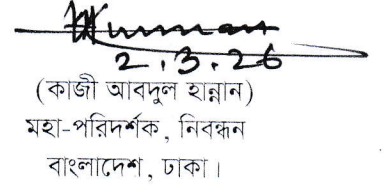 2.3.26
(কাজী আবদুল হান্নান)
মহা-পরিদর্শক, নিবন্ধন
বাংলাদেশ, ঢাকা।